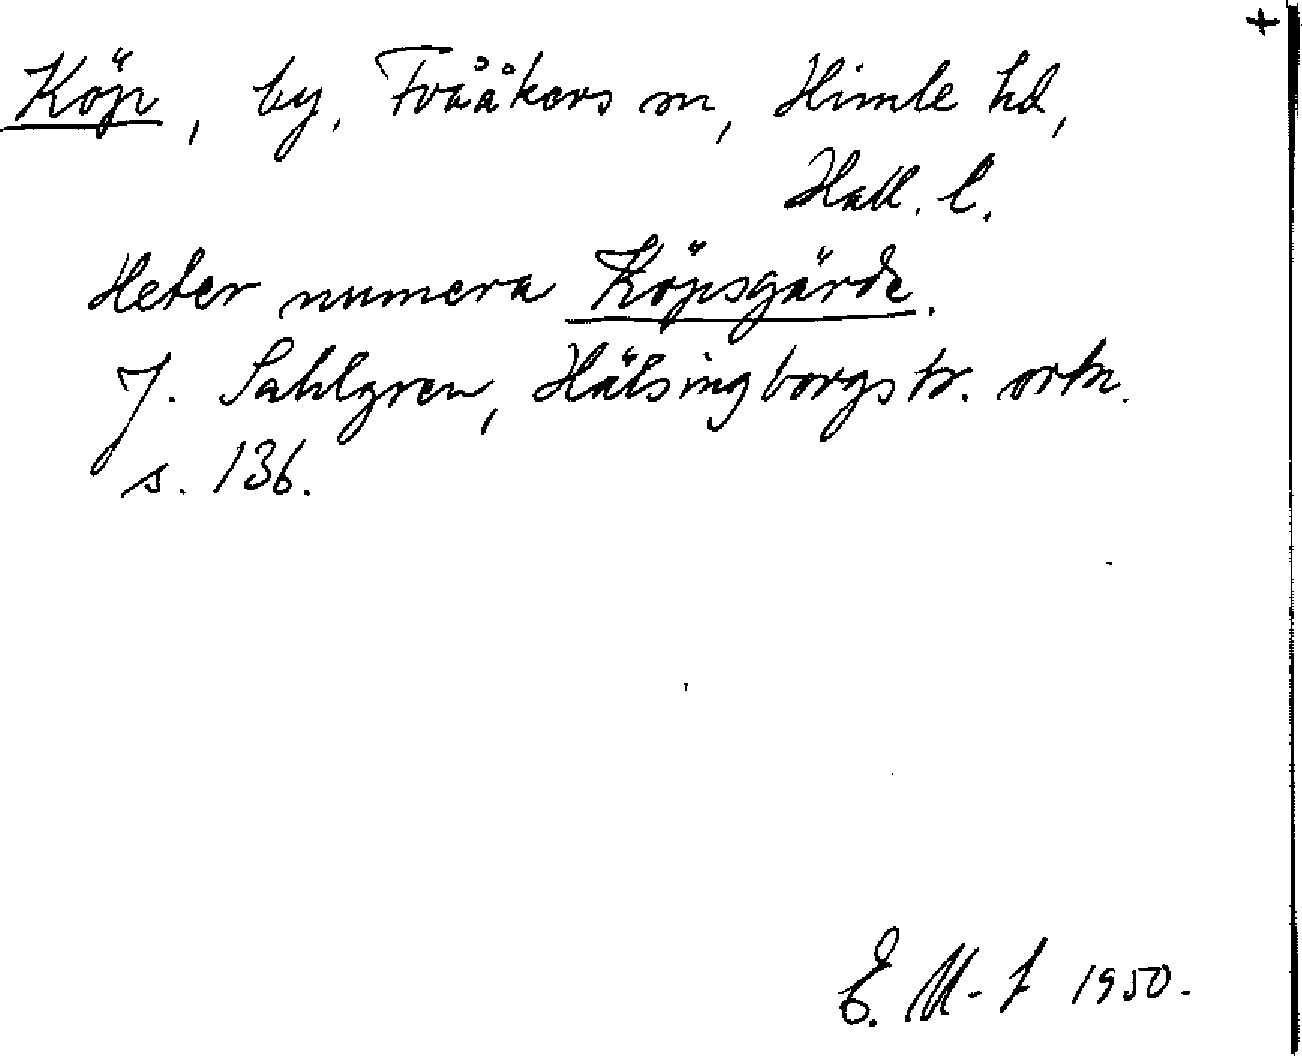 +
Köp, by, Tvååkers sn, Himle hd,
Hall. l.
Heter numera Köpsgärde.
J. Sahlgren, Hälsingborgstr. ortn.
s. 136.
E. M-f 1950.